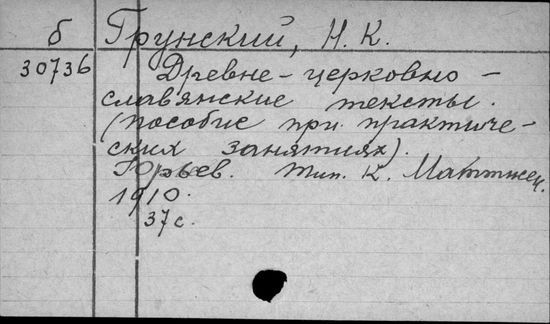 б Грунский, Н. К.
30736 Древне-церковно-
славянские тексты.
(пособие при практиче-
ских занятиях).
Юрьев. Тип. К. Маттисен.
1910.
37 с.